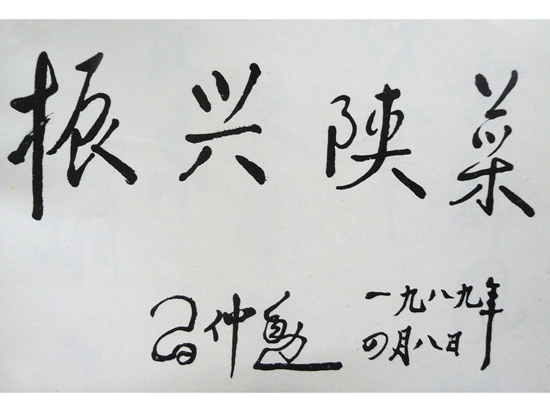 振兴陕菜
习仲勋 一九八九年
四月八日